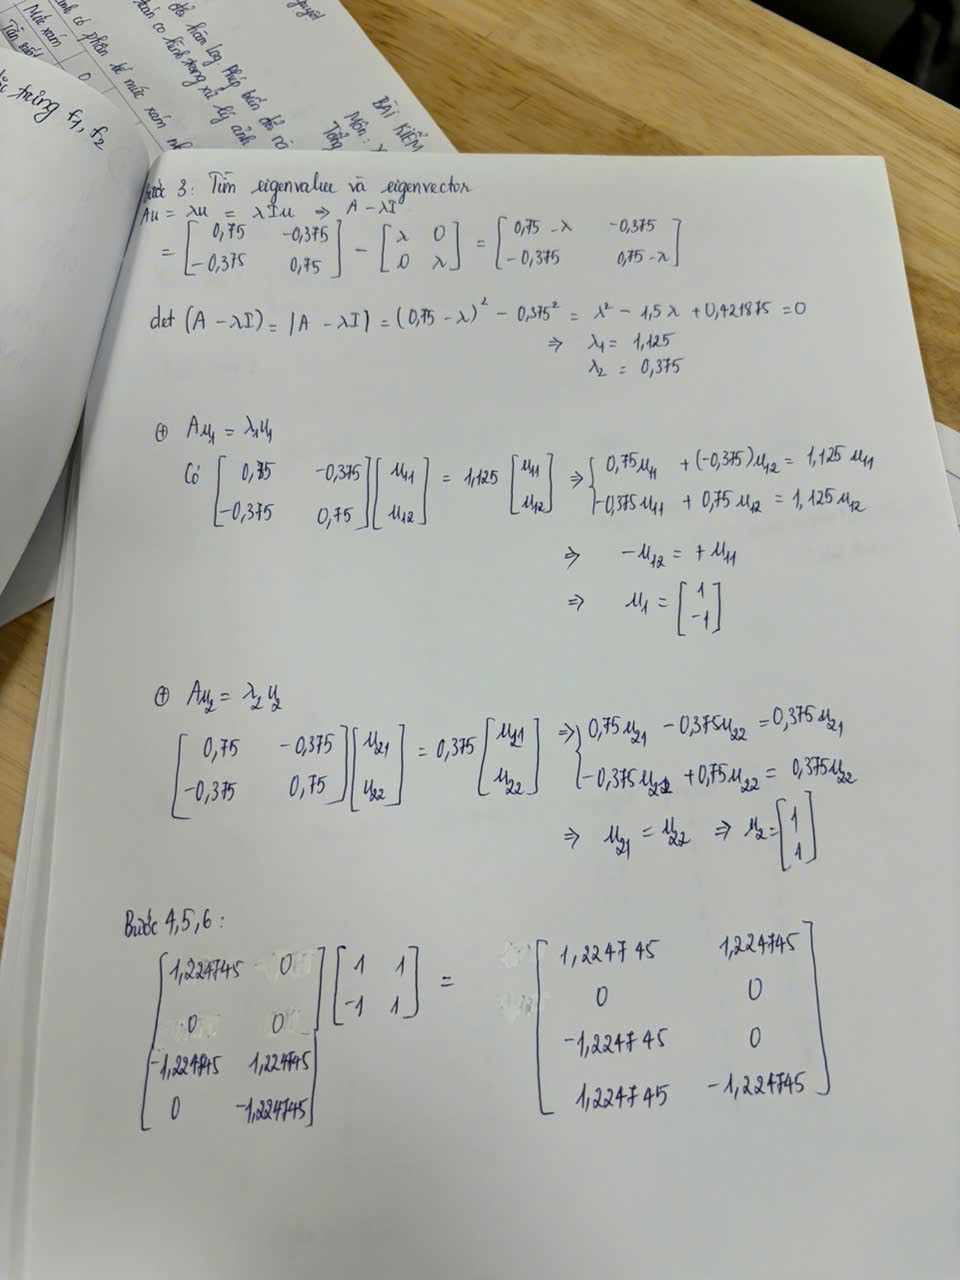 ặc trưng f1, f2
BÀI KIỂM
Môn:
Tổng
Mức xám
Tần suất
0
Bước 3: Tìm eigenvalue và eigenvector
Au = λu = λIu ⇒ A - λI
= [0,75 -0,375; -0,375 0,75] - [λ 0; 0 λ] = [0,75 - λ -0,375; -0,375 0,75 - λ]
det (A - λI) = |A - λI| = (0,75 - λ)² - 0,375² = λ² - 1,5λ + 0,421875 = 0
⇒ λ1 = 1,125
λ2 = 0,375
⊕ Au1 = λ1u1
Có [0,75 -0,375; -0,375 0,75] [u11; u12] = 1,125 [u11; u12] ⇒ { 0,75u11 + (-0,375)u12 = 1,125 u11
-0,375u11 + 0,75u12 = 1,125u12
⇒ -u12 = +u11
⇒ u1 = [1; -1]
⊕ Au2 = λ2u2
[0,75 -0,375; -0,375 0,75] [u21; u22] = 0,375 [u21; u22] ⇒ { 0,75u21 - 0,375u22 = 0,375u21
-0,375u22 + 0,75u22 = 0,375u22
⇒ u21 = u22 ⇒ u2 = [1; 1]
Bước 4,5,6:
[1,224745 0; 0 0; -1,224745 1,224745; 0 -1,224745] [1 1; -1 1] = [1,224745 1,224745; 0 0; -1,224745 0; 1,224745 -1,224745]